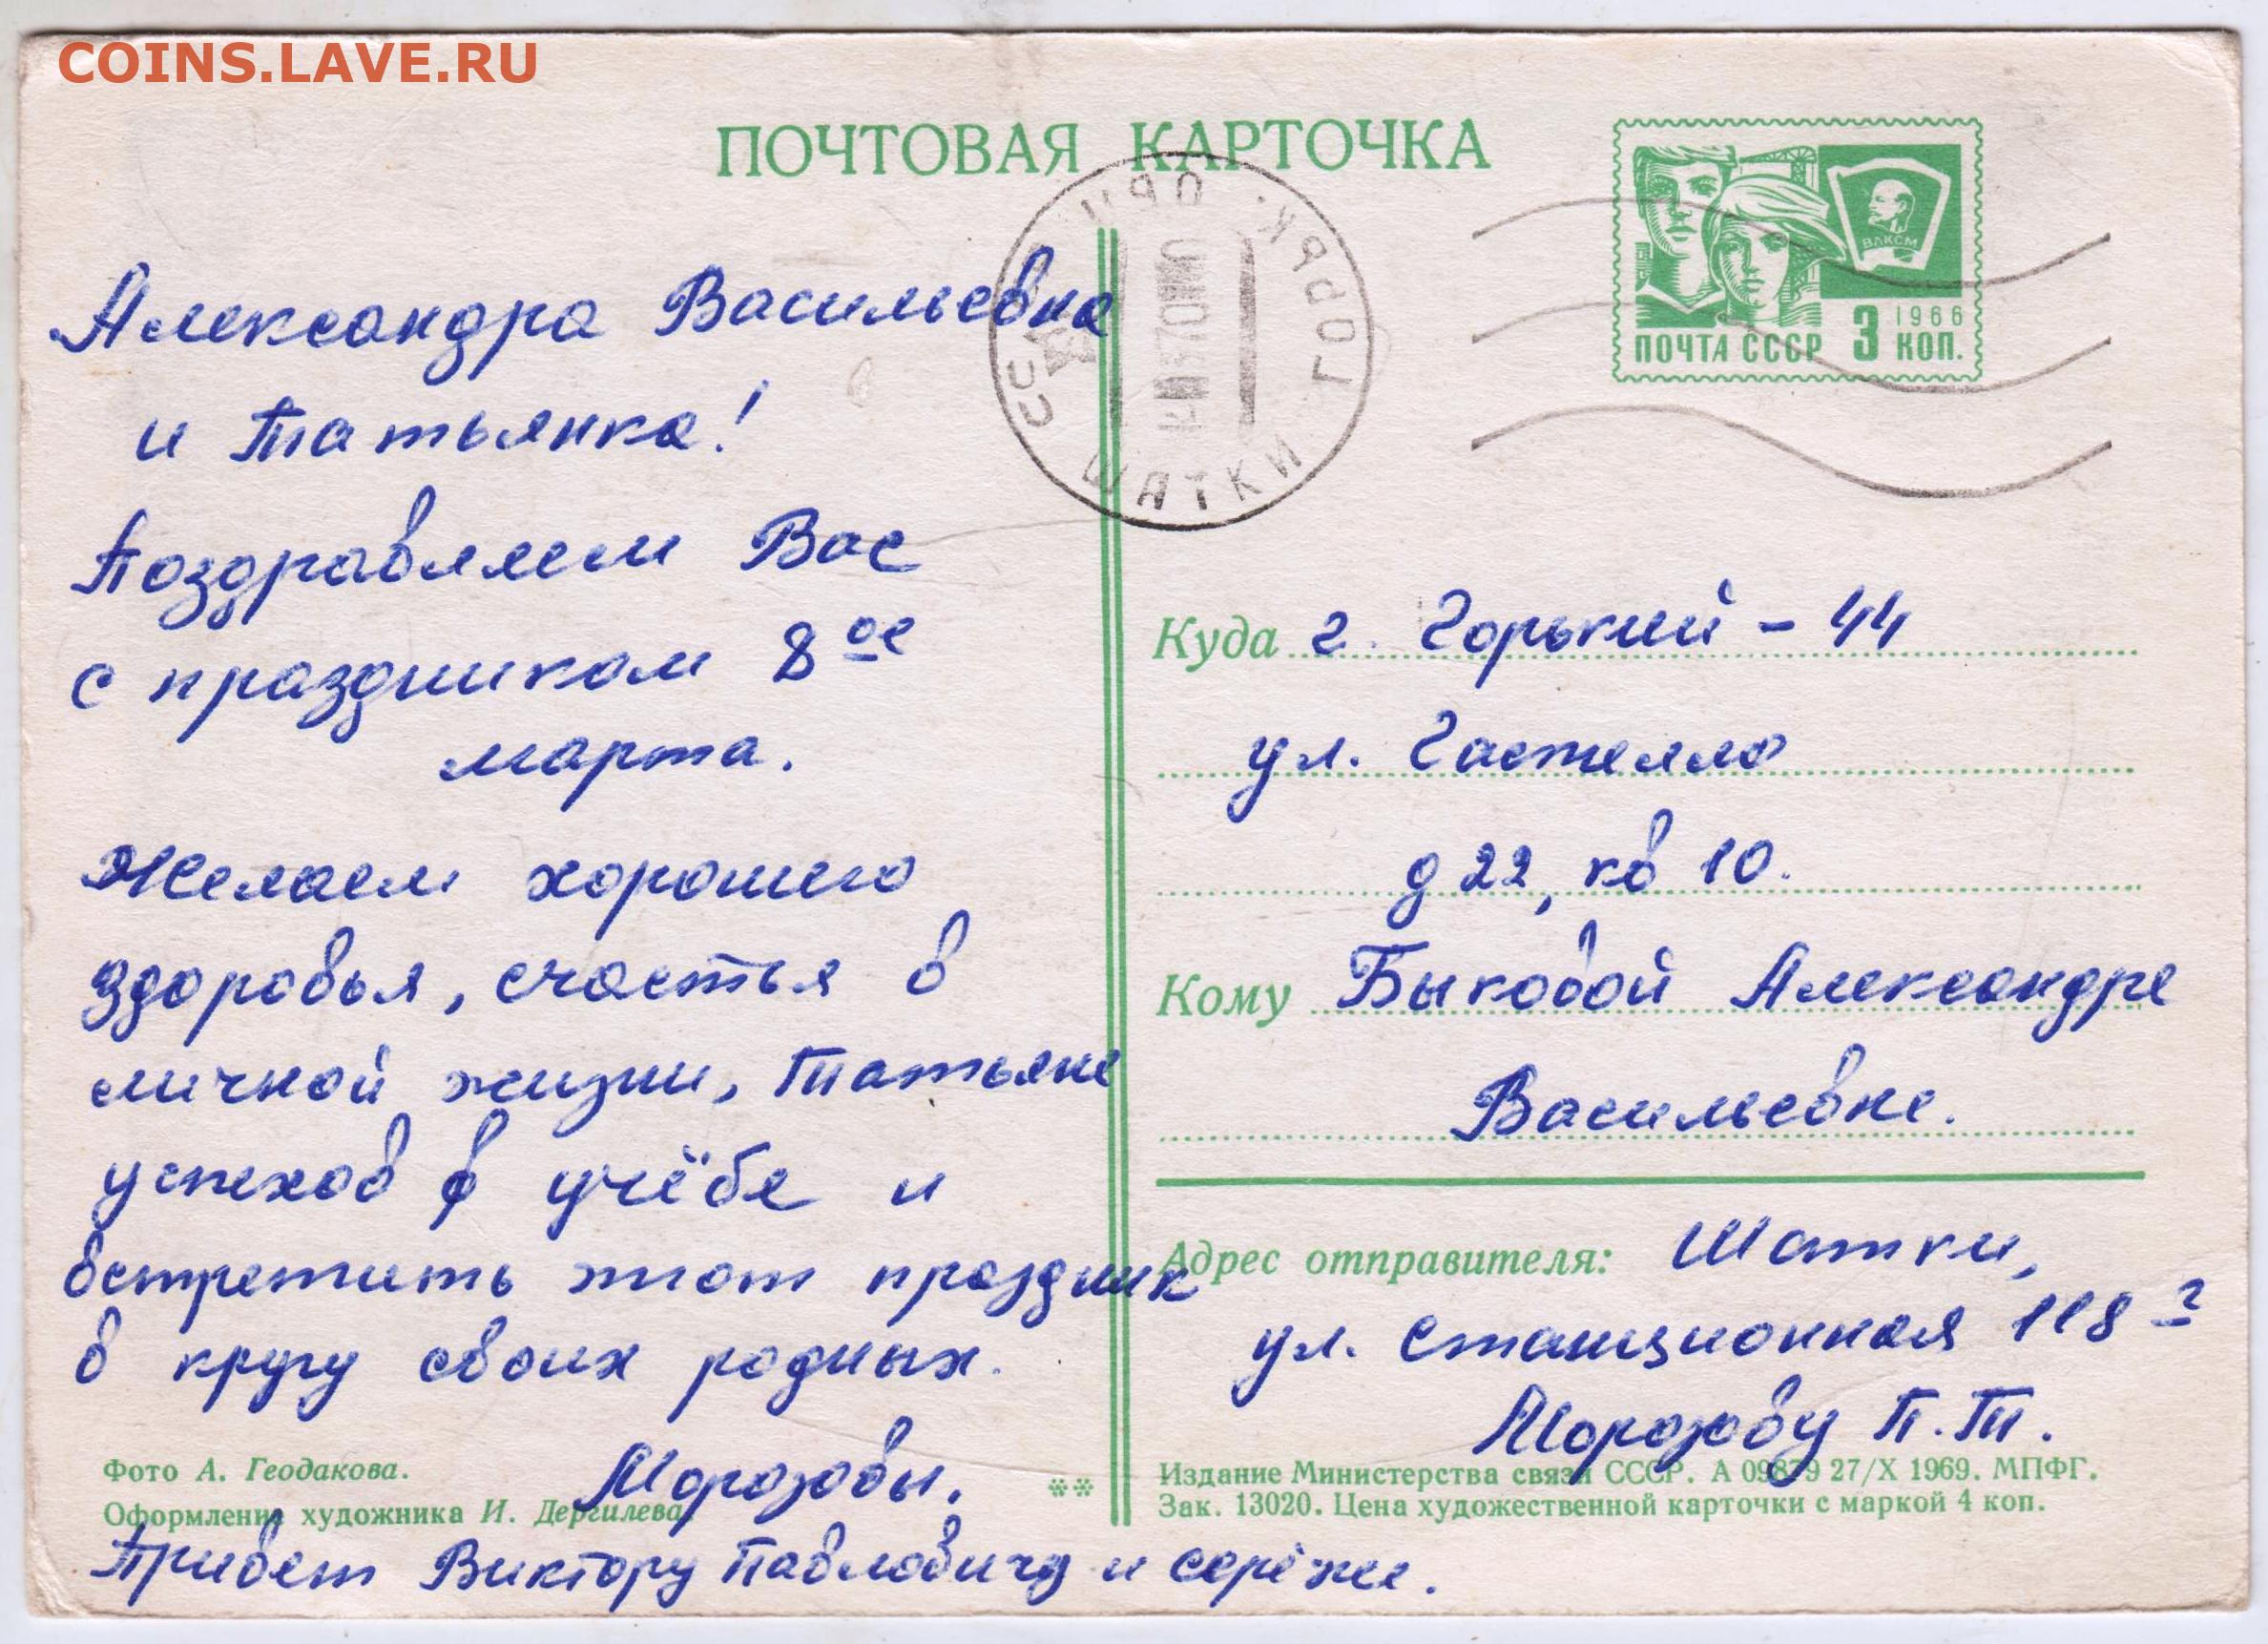 COINS.LAVE.RU
ПОЧТОВАЯ КАРТОЧКА
ГОРЬК. ОБЛ.
ШАТКИ
ВЛКСМ
1966
ПОЧТА СССР 3 КОП.
Александра Васильевна
и Татьянка!
Поздравляем Вас
с праздником 8ое
марта.
Желаем хорошего
здоровья, счастья в
личной жизни, Татьяне
успехов в учёбе и
встретить этот праздник
в кругу своих родных.
Морозовы.
Фото А. Геодакова.
Оформление художника И. Дергилева
Привет Виктору Павловичу и серёже.
Куда г. Горький - 44
ул. Гастелло
д 22, кв 10.
Кому Быковой Александре
Васильевне.
Адрес отправителя: Шатки,
ул. Станционная 118-2
Морозову П.Т.
Издание Министерства связи СССР. А 09879 27/X 1969. МПФГ.
Зак. 13020. Цена художественной карточки с маркой 4 коп.